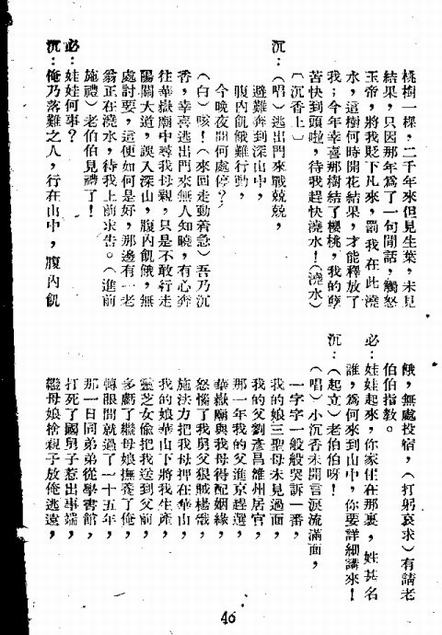 桃樹一棵，二千年來但見生葉，未見
結果，只因那年爲了一句閒話，觸怒
玉帝，將我貶下凡來，罰我在此澆
水，這樹何時開花結果，才能釋放了
我；今年幸喜那樹結了櫻桃，我的孽
苦快到頭啦，待我趕快澆水！（澆水）
〔沉香上〕
沉：（唱）逃出門來戰兢兢，
避難奔到深山中，
腹內飢餓難行動，
今晚夜間何處停？
（白）咳！（來回走動着急）吾乃沉
香，幸喜逃出門來無人知曉，有心奔
往華嶽廟中尋我母親，只是不敢行走
陽關大道，誤入深山，腹內飢餓，無
處討要，這便如何是好，那邊有一老
翁正在澆水，待我上前求告。（進前
施禮）老伯伯見禮了！
必：娃娃何事？
沉：俺乃落難之人，行在山中，腹內飢
餓，無處投宿，（打躬哀求）有請老
伯伯指教。
必：娃娃起來，你家住在那裏，姓甚名
誰，爲何來到山中，你要詳細講來！
沉：（起立）老伯伯呀！
（唱）小沉香未開言淚流滿面，
一字字一般般哭訴一番，
我的娘三聖母未見過面，
我的父劉彥昌雒州居官，
那一年我的父進京趕選，
華嶽廟與我母得配姻緣，
怒惱了我舅父狠賊楊戩，
施法力把我母押在華山，
我的娘華山下將我生產，
靈芝女偷把我送到父前，
多虧了繼母娘撫養了俺，
轉眼間就過了一十五年，
那一日同弟弟從學書館，
打死了國舅子惹出事端，
繼母娘捨親子放俺逃遠，
46